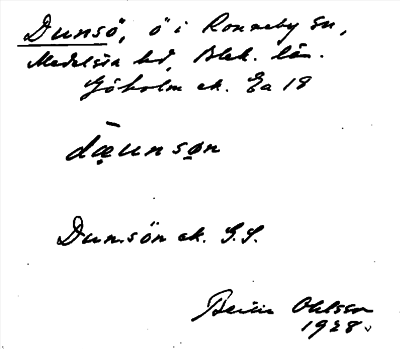 Dunsö, ö i Ronneby sn,
Medelsta hd, Blek. län.
Göholm ek. Ea 18
dæunsøn
Dunsön ek. G.S.
Ohlsson
1928.